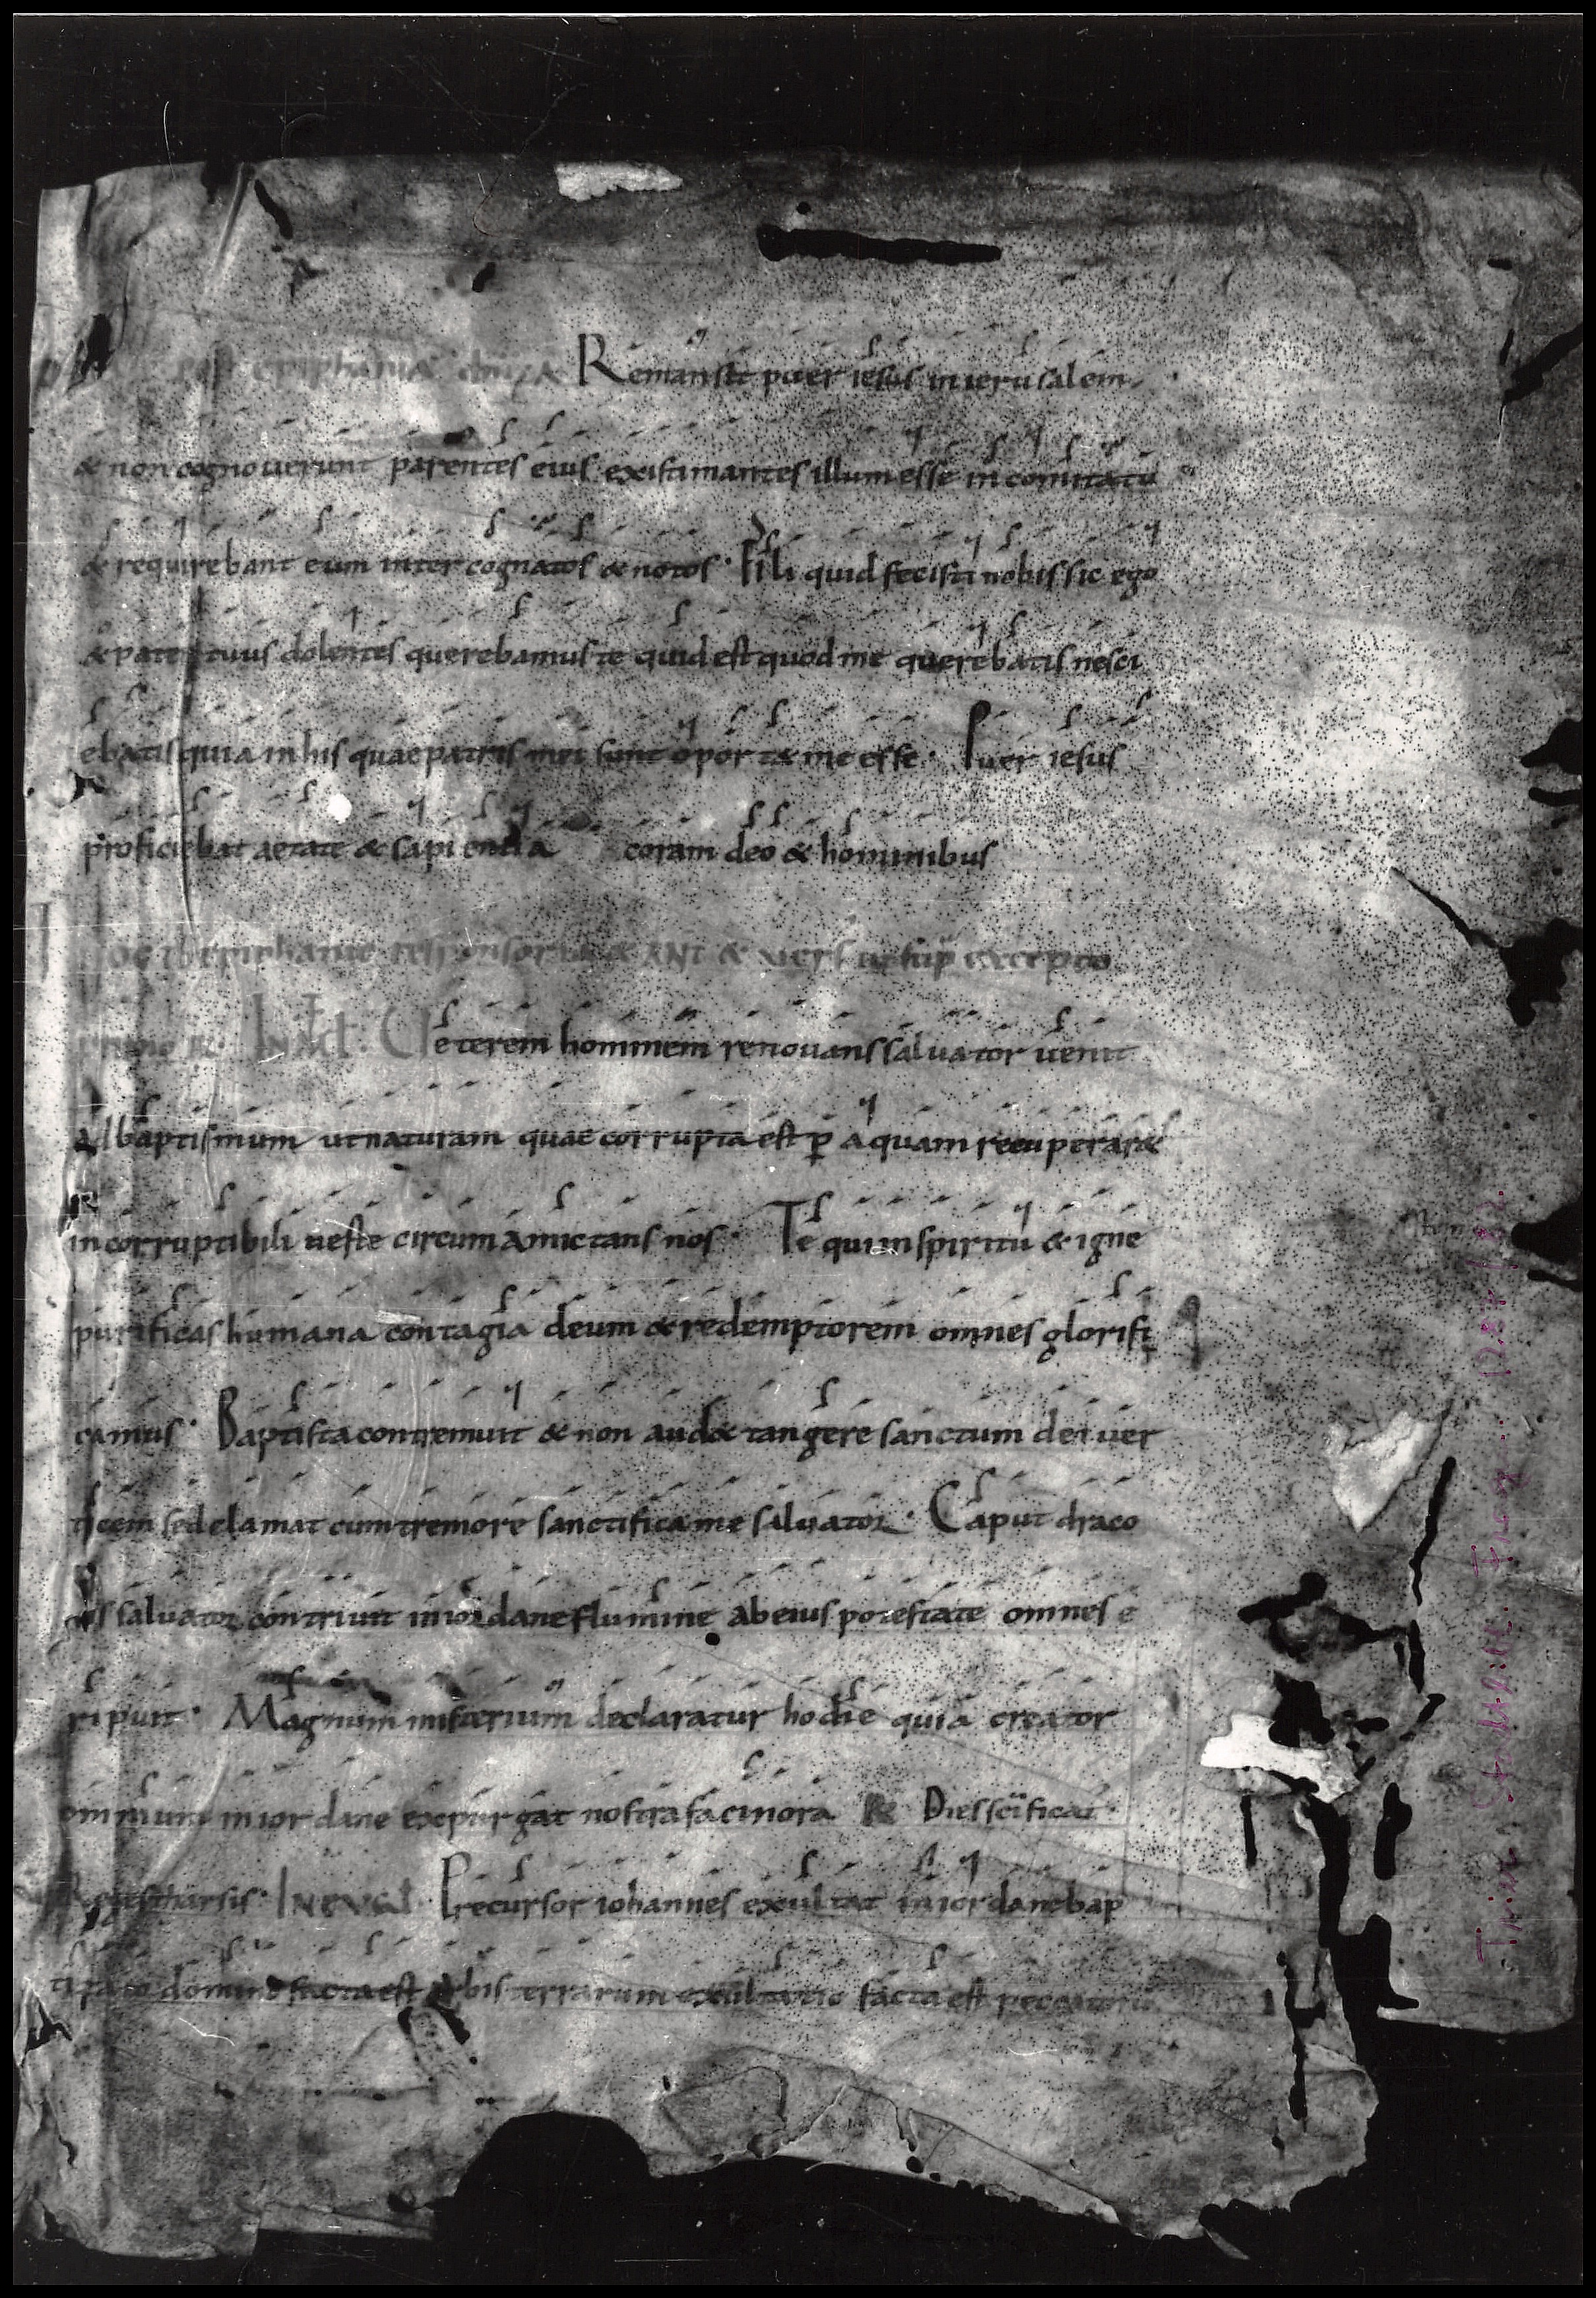 post epiphaniã dni A Remansit puer iesus in ierusalem
& non cognouerunt parentes eius existimantes illum esse in comitatu
& requirebant eum inter cognatos & notos · Fili quid fecisti nobis sic ego
& pater tuus dolentes querebamus te quid est quod me querebatis nesci
ebatis quia in his quae patris mei sunt opor t& me esse · Puer iesus
proficiebat aetate & sapientia coram deo & hominibus
epiphaniae responsoria & ANT & vers ut sup excepto
primo R · IN MAT · Ueterem hominem renouans saluator uenit
ad baptismum ut naturam quae corrupta est p aquam recuperar&
incorruptibili ueste circum amictans nos · Te qui in spiritu & igne
purificas humana contagia deum & redemptorem omnes glorifi
camus · Baptista contremuit & non aud& tangere sanctum dei uer
ticem sed clamat cum tremore sanctifica me saluator · Caput draco
nis saluator contriuit in iordane flumine ab eius potestate omnes e
ripuit · Magnum misterium declaratur hodie quia creator
omnium in iordane expurgat nostra facinora R Dies scificat
tharsis · IN EVGL · Precursor iohannes exultat in iordane bap
tizato domino facta est orbis terrarum exultatio facta est peccatoru
Trier Stadtbibl. Fragm.